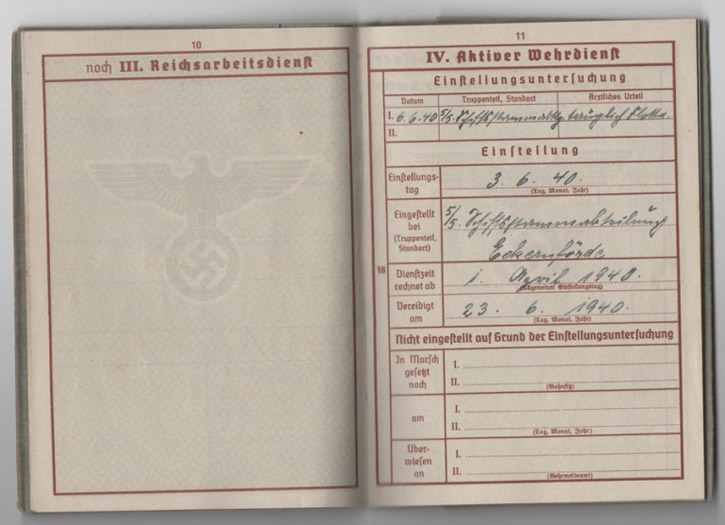 10
noch III. Reichsarbeitsdienst
11
IV. Aktiver Wehrdienst
Einstellungsuntersuchung
Datum Truppenteil, Standort Ärztliches Urteil
I. 6.6.40 5/5. Schiffsstammabtlg tauglich Flotte.
II.
Einstellung
Einstellungs-
tag
3. 6. 40.
(Tag, Monat, Jahr)
Eingestellt
bei
(Truppenteil,
Standort)
5/5. Schiffsstammabteilung
Eckernförde
18
Dienstzeit
rechnet ab
1. April 1940.
(Allgemeiner Einstellungstag)
Vereidigt
am
23. 6. 1940.
(Tag, Monat, Jahr)
Nicht eingestellt auf Grund der Einstellungsuntersuchung
In Marsch
gesetzt
nach
I.
II.
(Wohnsitz)
am
I.
II.
(Tag, Monat, Jahr)
Über-
wiesen
an
I.
II.
(Wehrmeldeamt)